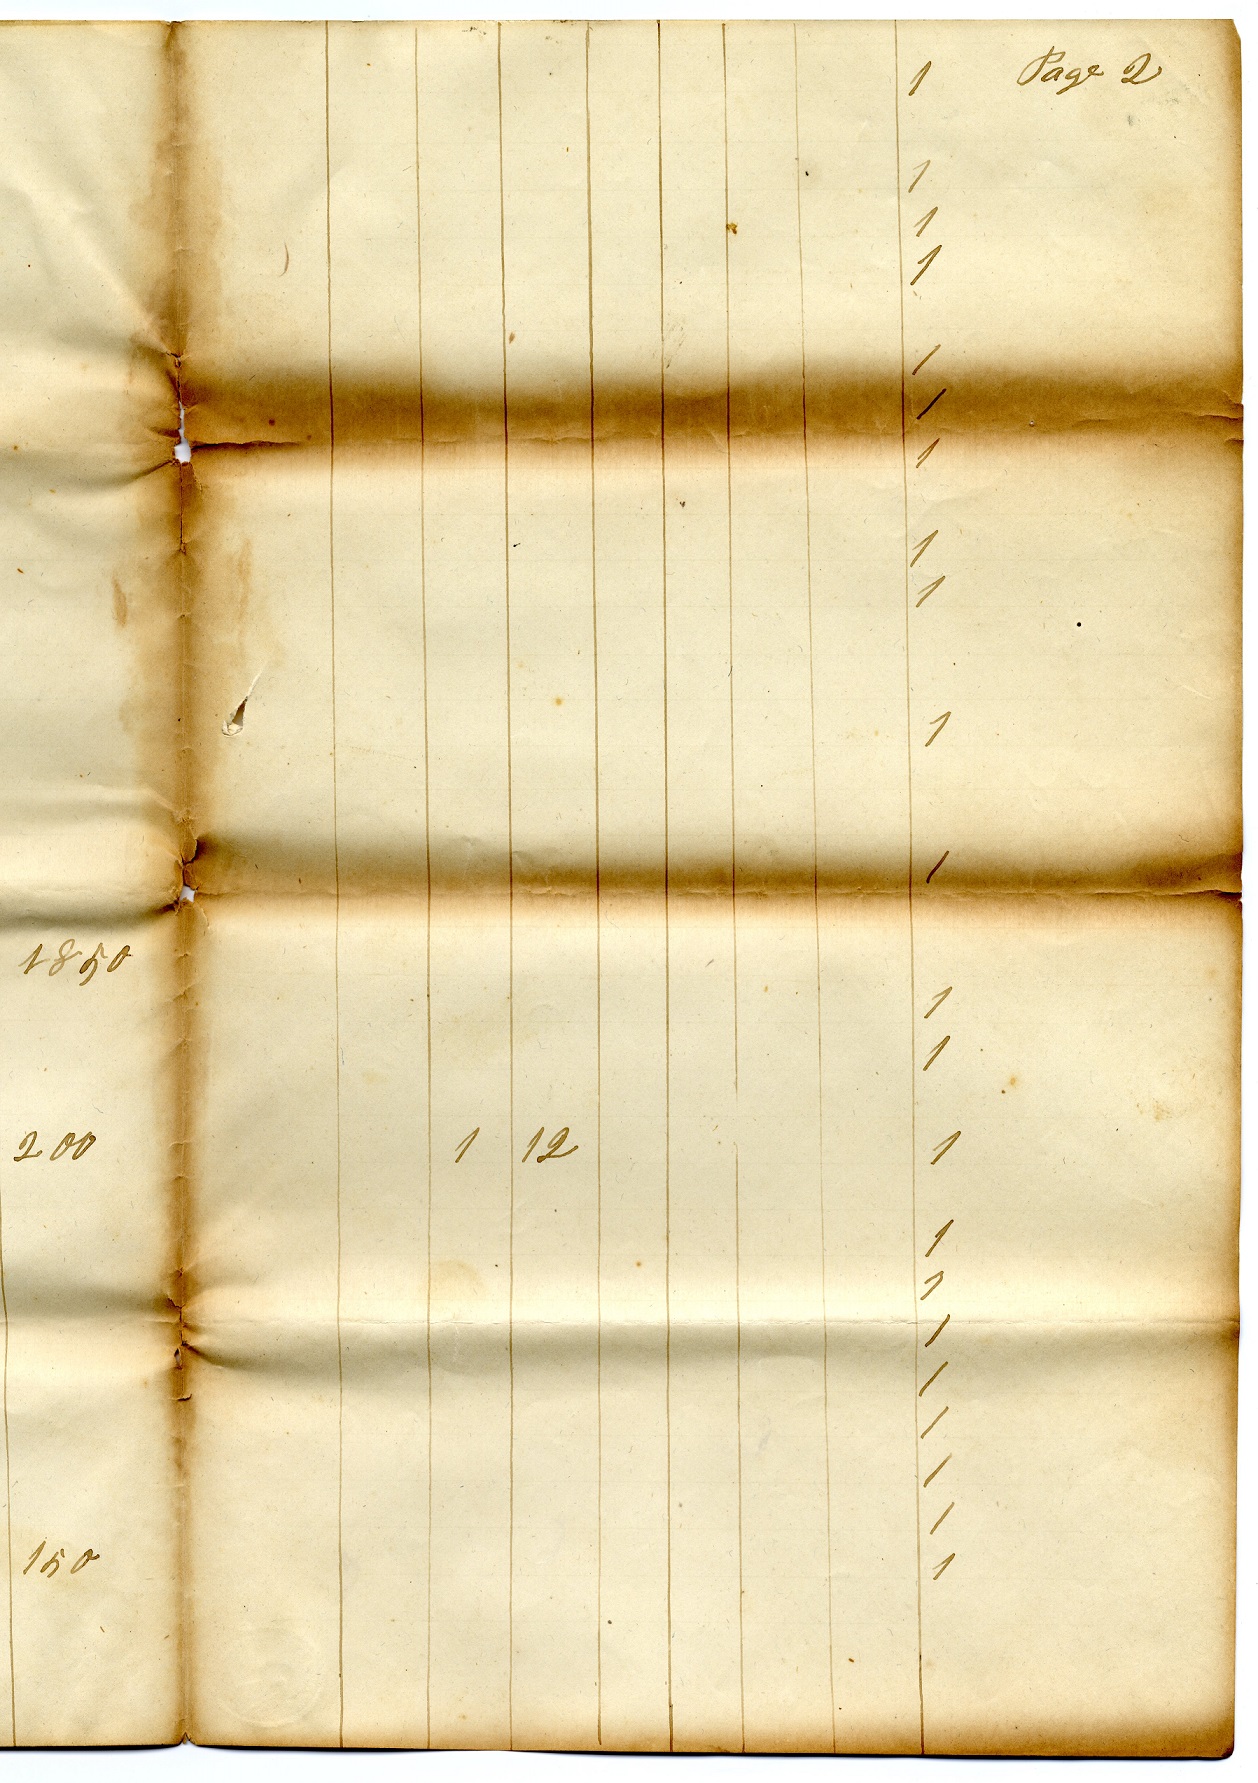 1 Page 2
1
1
1
1
1
1
1
1
1
1
1850
1
1
200 1 12 1
1
1
1
1
1
1
1
150 1